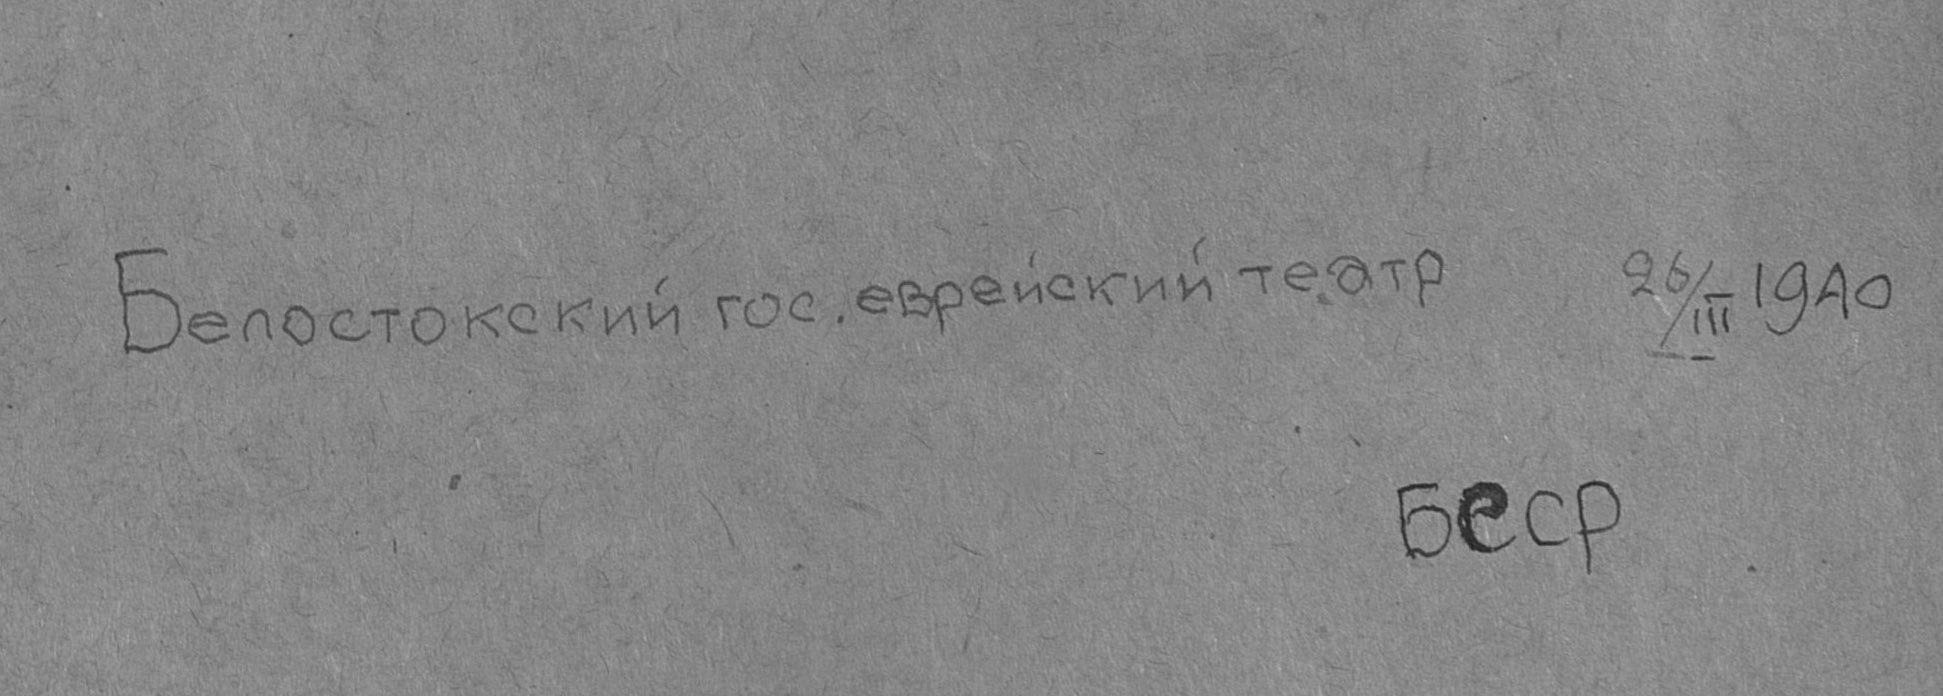 Белостокский гос. еврейский театр 26/III 1940
БССР